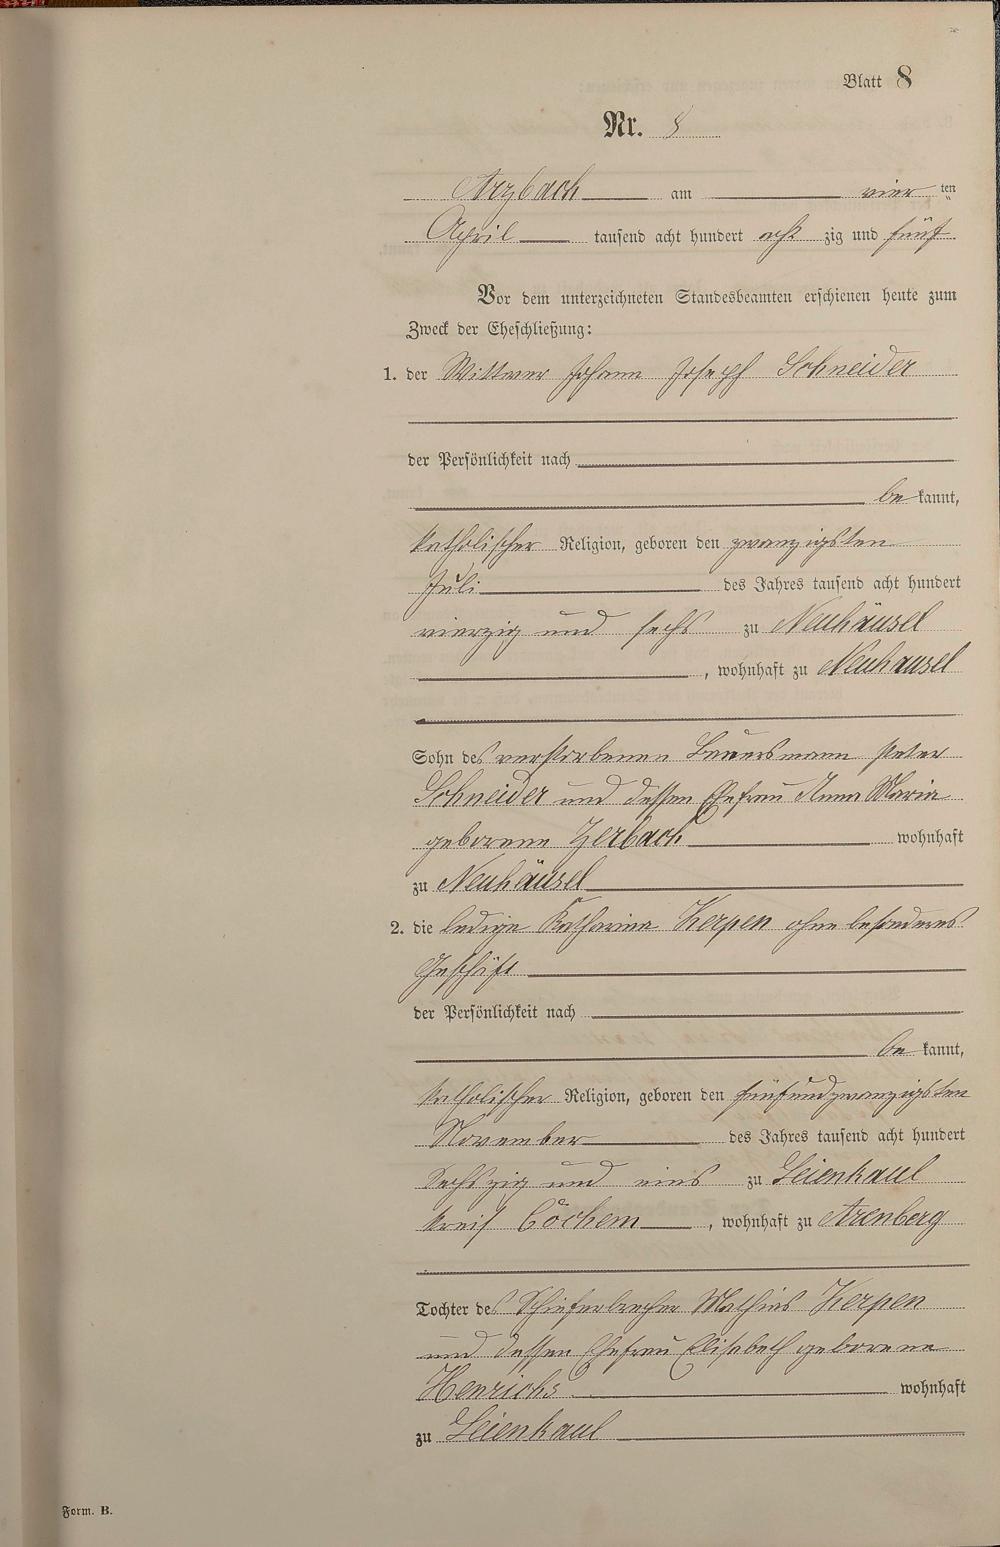 Blatt 8
Nr. 8
Arzbach am vier ten
April tausend acht hundert acht zig und fünf
Vor dem unterzeichneten Standesbeamten erschienen heute zum
Zweck der Eheschließung:
1. der Wittwer Johann Joseph Schneider
der Persönlichkeit nach
be kannt,
katholischer Religion, geboren den zwanzigsten
Juli des Jahres tausend acht hundert
vierzig und sechs zu Neuhäusel
, wohnhaft zu Neuhäusel
Sohn des verstorbenen Bauersmann Peter
Schneider und dessen Ehefrau Anna Maria
geborene Zerbach wohnhaft
zu Neuhäusel
2. die ledige Katharina Kerpen ohne besonderes
Geschäft
der Persönlichkeit nach
be kannt,
katholischer Religion, geboren den fünfundzwanzigsten
November des Jahres tausend acht hundert
sechszig und eins zu Leienkaul
Kreis Cochem , wohnhaft zu Arenberg
Tochter des Schieferbrecher Mathias Kerpen
und dessen Ehefrau Elisabeth geborene
Henrichs wohnhaft
zu Leienkaul
Form. B.